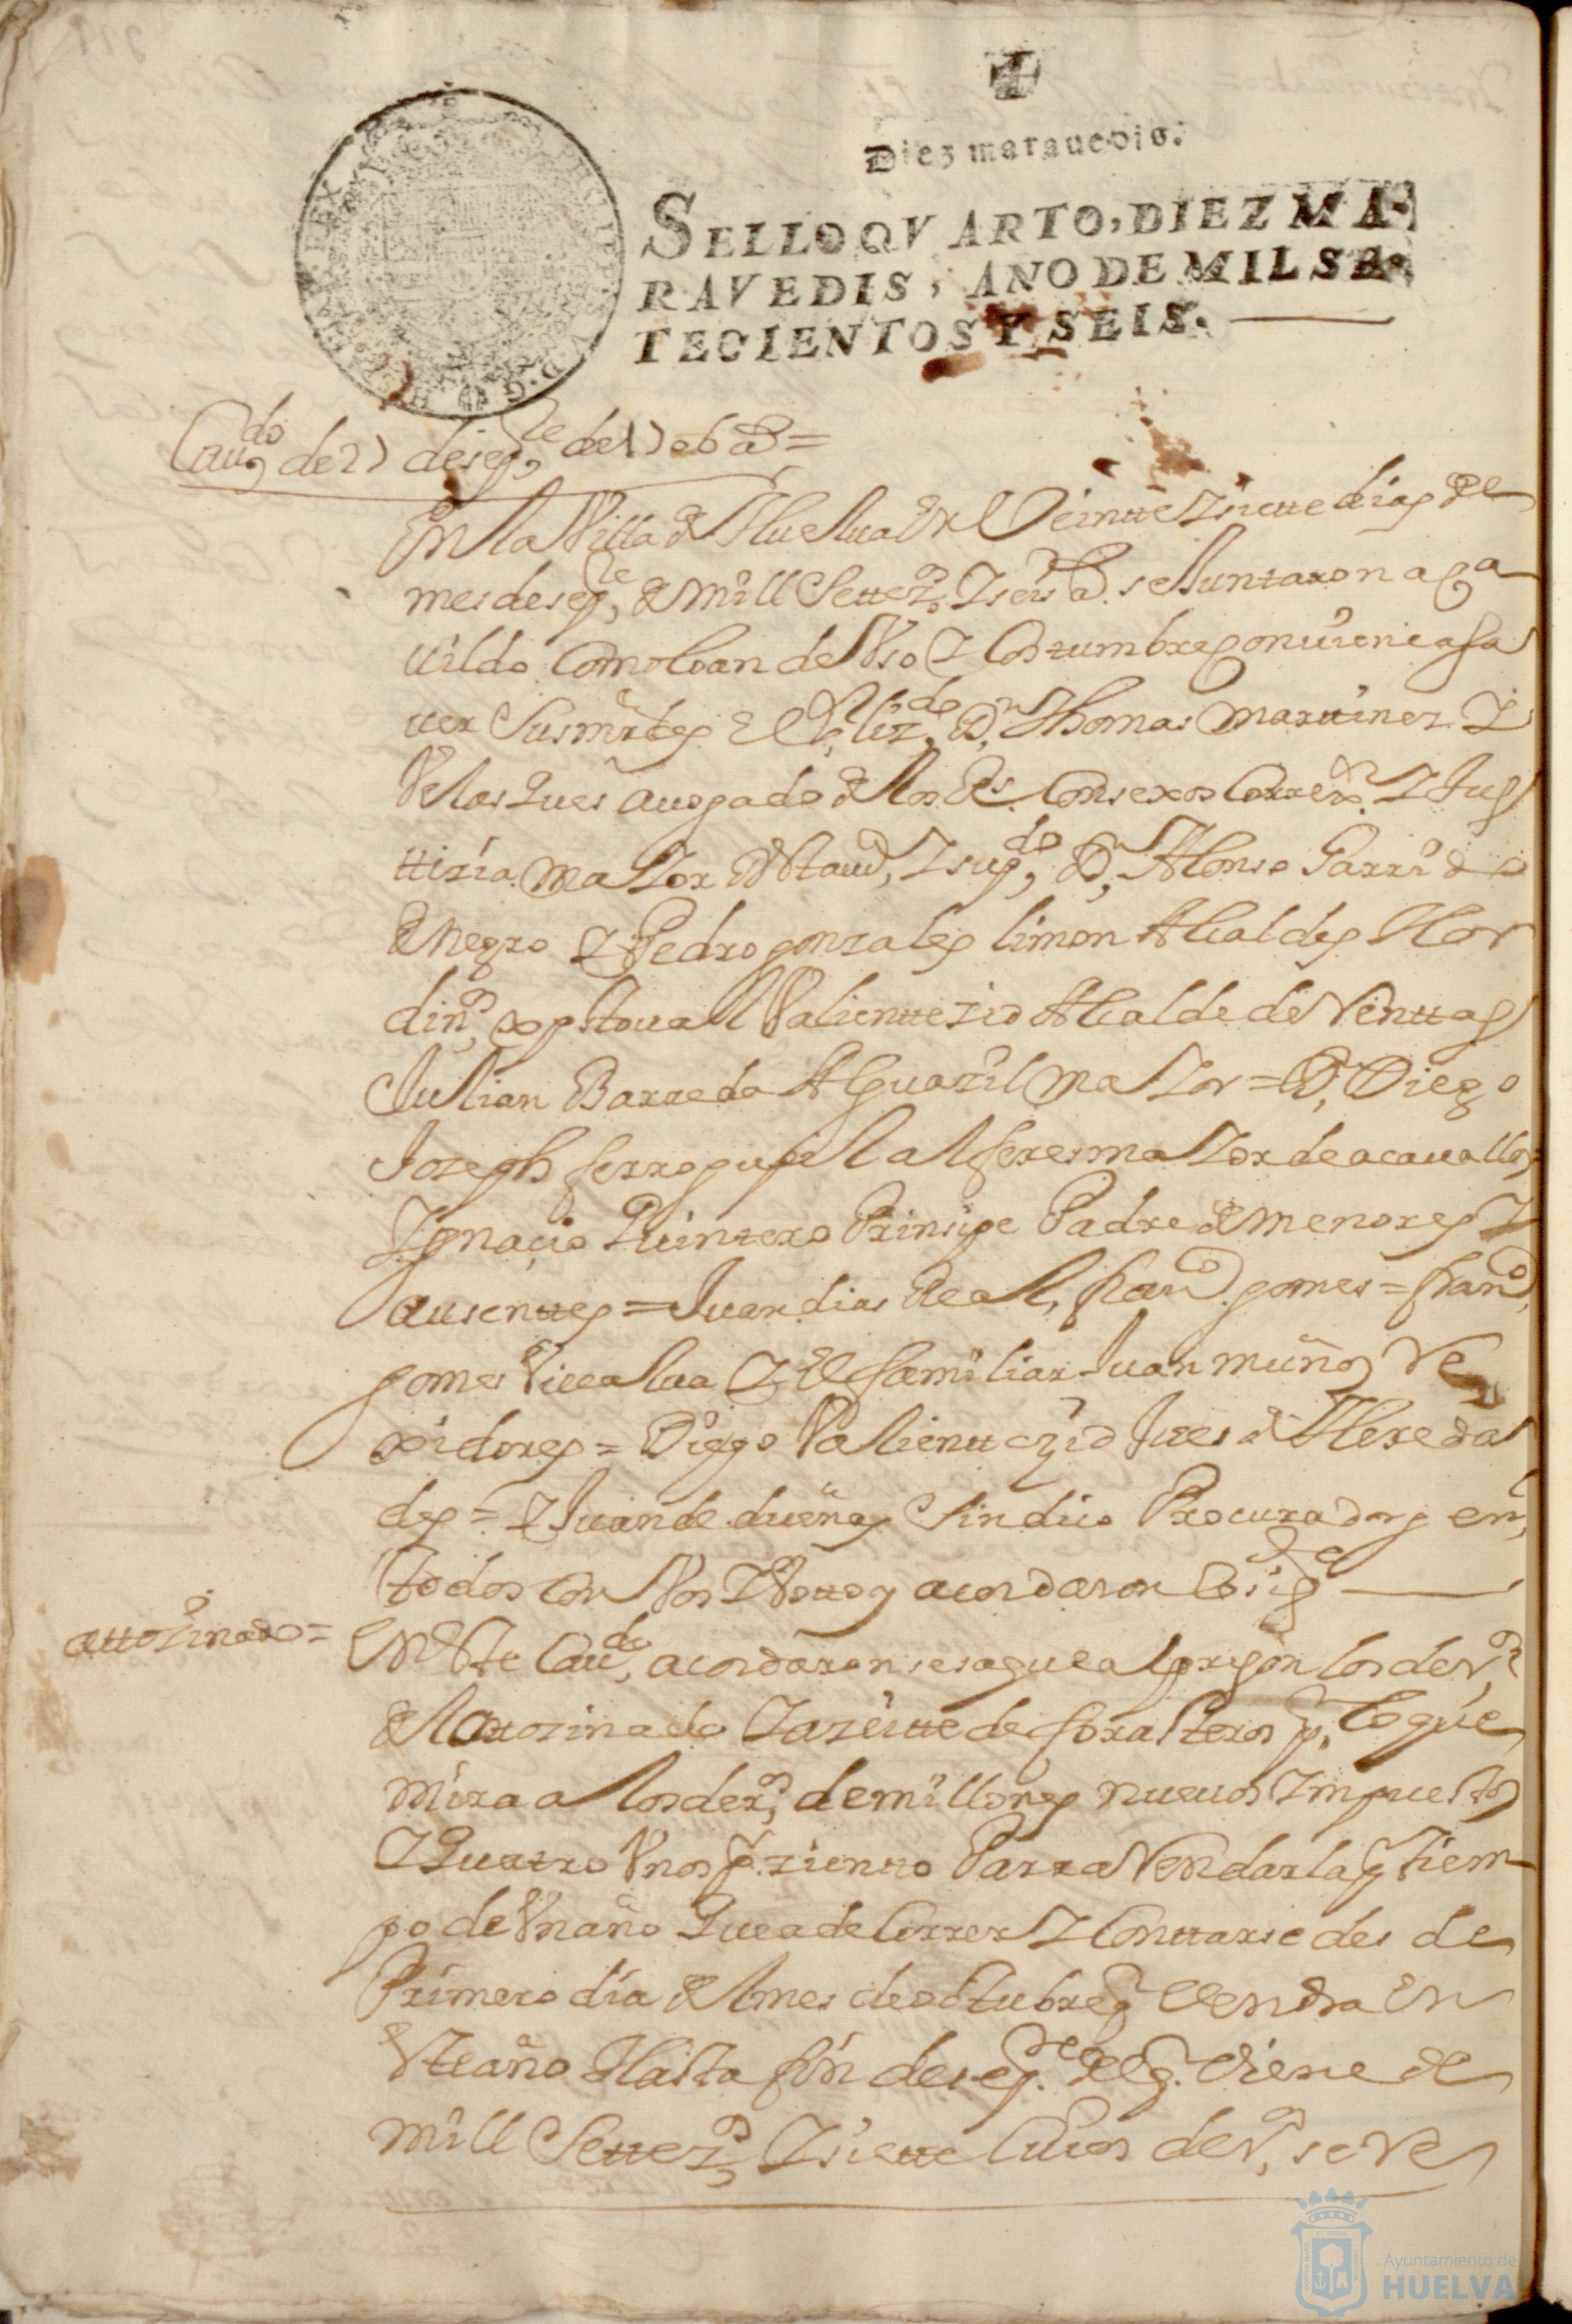 Diez marauedis.
SELLO QVARTO, DIEZ MA-
RAVEDIS, AÑO DE MIL SE-
TECIENTOS Y SEIS.
Caudo de 27 de septe de 1706 as =
En la Villa de Huelua en Veintte y siette dias de
mes de septe de mill Settezos y seis as se Juntaron a Ca
uildo Como lo an de Vso y Costumbre conuiene a sa
uer Sus mrdes el Sr lizdo Dn Thomas martinez y
Velasques auogado de los Rs Consexos Correxor y Jus
tizia maior de esta ud, y su Dn Alonso Garrido
de negro y Pedro gonzales limon Alcaldes Hor
dinos xpstoual Valientte Alcalde de Venttas
Julian Barreda Alguazil maior = Dn Diego
Joseph ferro Alferes maior de acauallo
Ygnacio Quintero Prinsipe Padre de menores y
ausenttes = Juan dias Real, franco gomes = franco
gomes Villalua y el familiar Juan muños Re
xidores = Diego Valientte Jues de Hereda
des = y Juan de dueñas Sindico Procurador gen
todos con Vos y Votto y acordaron lo sigte
attozinado =
En este Caudo acordaron se saque al pregon los
del attozinado y azeitte de forasteros pr lo que
mira a los deRos de millones nueuos Impuestos
y Quatro Vnos pr zientto Para Rendarlas pr tiem
po de Vn año Que a de Correr y Conttarse desde
Primero dia del mes de octubre q Vendra en
este año Hasta fin de septe del q Viene de
mill Settezos y siette Cuios dexos se Re
Ayuntamiento de
HUELVA